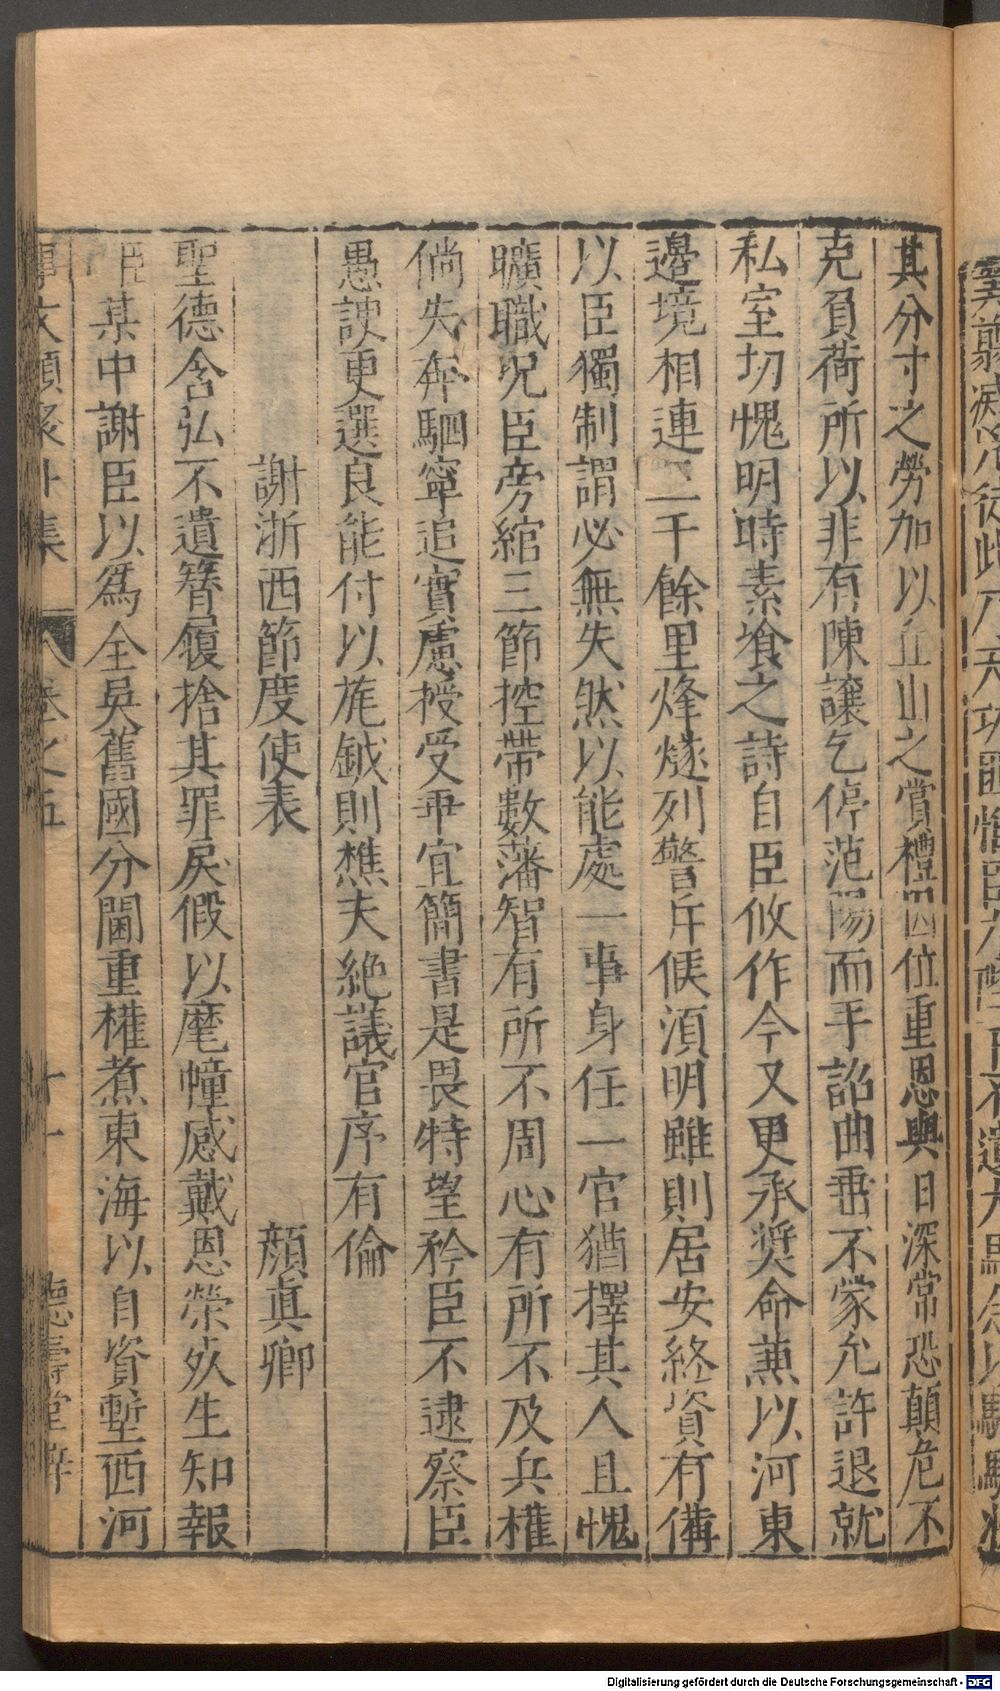 其分寸之勞加以丘山之賞禮因位重恩與日深常恐顛危不
克負荷所以非有陳讓乞停范陽而手詔曲垂不蒙允許退就
私室切愧明時素飡之詩自臣攸作今又更承奨命兼以河東
邊境相連二千餘里烽燧列警斥候湏明雖則居安終資有備
以臣獨制謂必無失然以能處一事身任一官猶擇其人且愧
曠職况臣旁綰三節控帶數藩智有所不周心有所不及兵權
倘失奔駟寧追實慮授受乖宜簡書是畏特望矜臣不逮察臣
愚諛更選良能付以旄鉞則樵夫絶議官序有倫
謝浙西節度使表　顔真卿
聖德含弘不遺簪履捨其罪戾假以麾幢感戴恩榮歿生知報
臣某中謝臣以爲全吳舊國分閫重權煮東海以自資塹西河
集　卷之五　十一　德壽堂梓
Digitalisierung gefördert durch die Deutsche Forschungsgemeinschaft - DFG